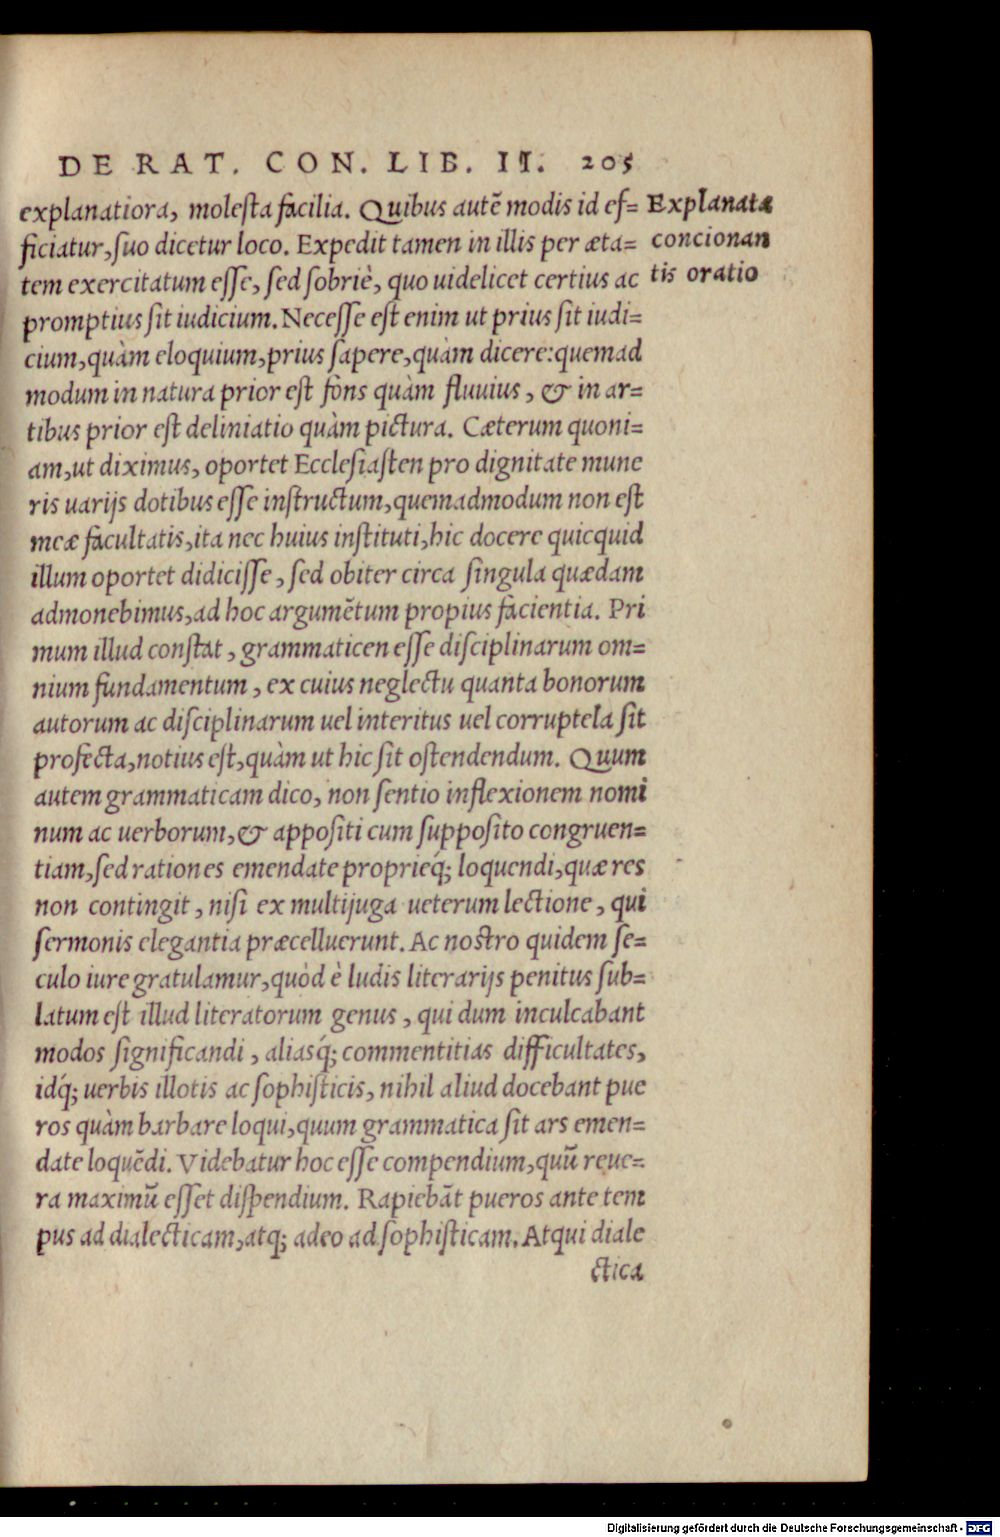 DE RAT. CON. LIB. II. 205
explanatiora, molesta facilia. Quibus autẽ modis id ef=
ficiatur, suo dicetur loco. Expedit tamen in illis per æta=
tem exercitatum esse, sed sobriè, quo uidelicet certius ac
promptius sit iudicium. Necesse est enim ut prius sit iudi=
cium, quàm eloquium, prius sapere, quàm dicere: quemad
modum in natura prior est fons quàm fluuius, & in ar=
tibus prior est deliniatio quàm pictura. Cæterum quoni=
am, ut diximus, oportet Ecclesiasten pro dignitate mune
ris uarijs dotibus esse instructum, quemadmodum non est
meæ facultatis, ita nec huius instituti, hic docere quicquid
illum oportet didicisse, sed obiter circa singula quædam
admonebimus, ad hoc argumẽtum propius facientia. Pri
mum illud constat, grammaticen esse disciplinarum om=
nium fundamentum, ex cuius neglectu quanta bonorum
autorum ac disciplinarum uel interitus uel corruptela sit
profecta, notius est, quàm ut hic sit ostendendum. Quum
autem grammaticam dico, non sentio inflexionem nomi
num ac uerborum, & appositi cum supposito congruen=
tiam, sed rationes emendate proprieq́; loquendi, quæ res
non contingit, nisi ex multijuga ueterum lectione, qui
sermonis elegantia præcelluerunt. Ac nostro quidem se=
culo iure gratulamur, quòd è ludis literarijs penitus sub=
latum est illud literatorum genus, qui dum inculcabant
modos significandi, aliasq́; commentitias difficultates,
idq́; uerbis illotis ac sophisticis, nihil aliud docebant pue
ros quàm barbare loqui, quum grammatica sit ars emen=
date loquẽdi. Videbatur hoc esse compendium, quũ reue=
ra maximũ esset dispendium. Rapiebãt pueros ante tem
pus ad dialecticam, atq; adeo ad sophisticam. Atqui diale
ctica
Explanatæ
concionan
tis oratio
Digitalisierung gefördert durch die Deutsche Forschungsgemeinschaft - DFG